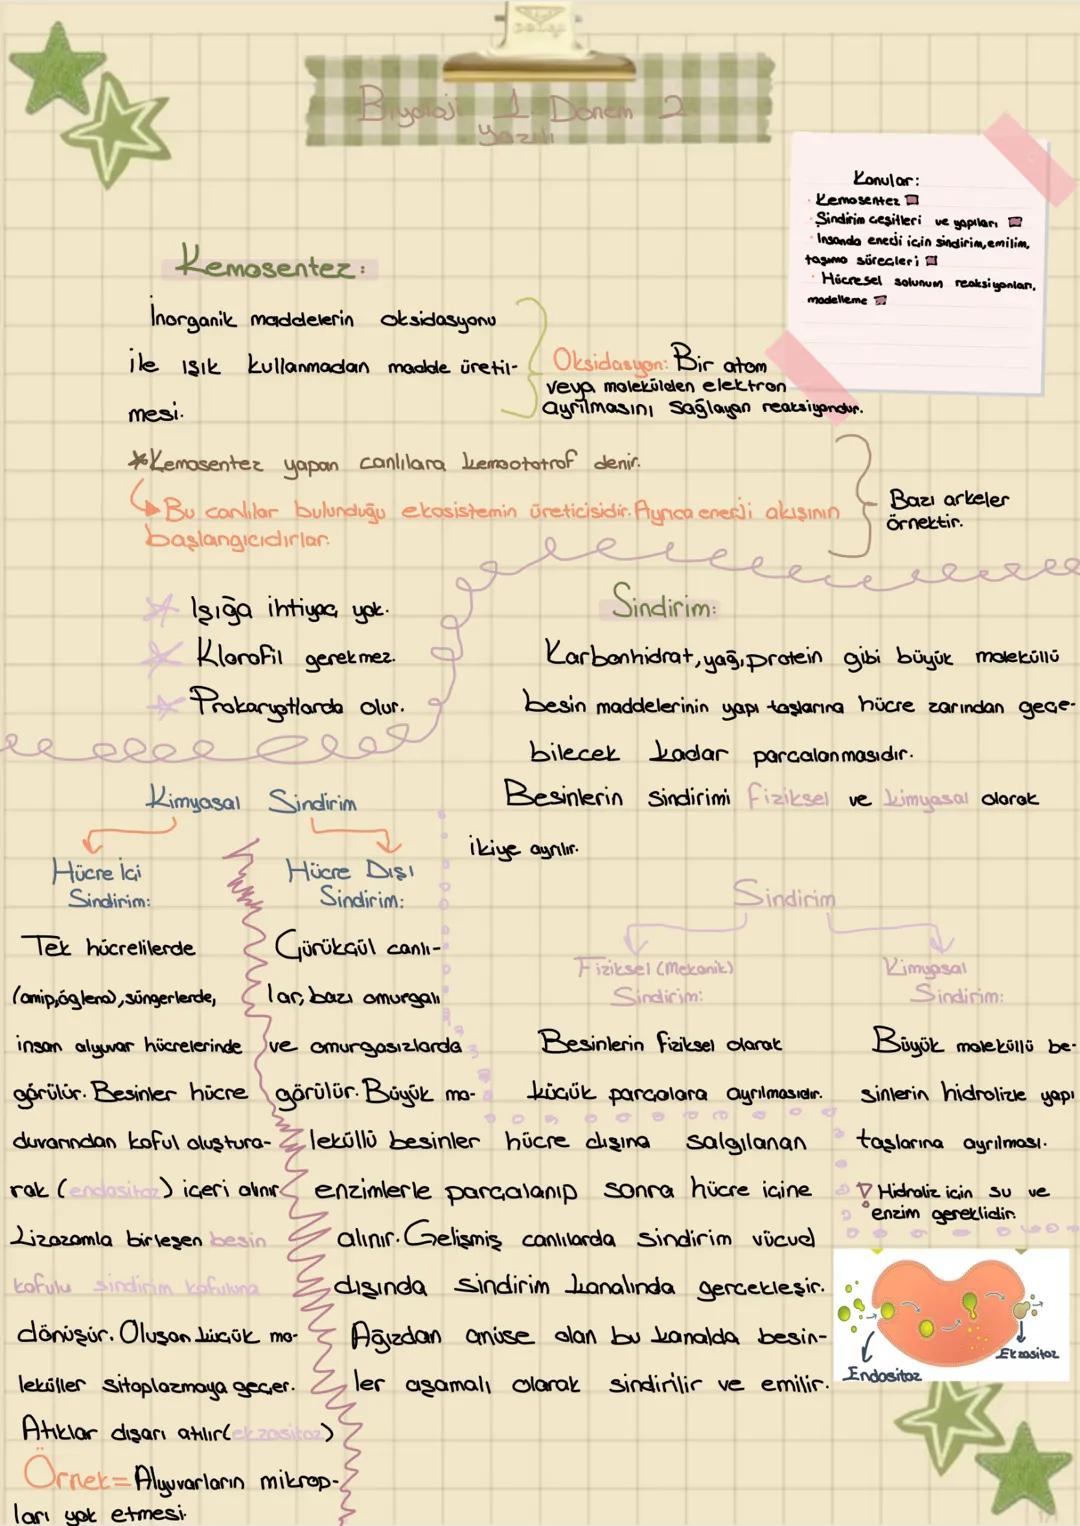 Biyoloji 1 Donem 2
yazılı
Konular:
· Kemosentez
· Sindirim çeşitleri ve yapıları
· İnsanda enerji için sindirim, emilim,
taşıma süreçleri
· Hücresel solunum reaksiyonları,
modelleme
Kemosentez:
İnorganik maddelerin oksidasyonu
ile ışık kullanmadan madde üretil-
mesi.
Oksidasyon: Bir atom
veya molekülden elektron
ayrılmasını sağlayan reaksiyondur.
*Kemosentez yapan canlılara kemoototrof denir.
Bu canlılar bulunduğu ekosistemin üreticisidir. Ayrıca enerji akışının
başlangıcıdırlar.
Bazı arkeler
örnektir.
* Işığa ihtiyaç yok.
* Klorofil gerekmez.
* Prokaryotlarda olur.
Sindirim:
Karbonhidrat, yağ, protein gibi büyük moleküllü
besin maddelerinin yapı taşlarına hücre zarından geçe-
bilecek kadar parçalanmasıdır.
Besinlerin sindirimi fiziksel ve kimyasal olarak
ikiye ayrılır.
Kimyasal Sindirim
Hücre İçi
Sindirim:
Tek hücrelilerde
(amip, öglena), süngerlerde,
insan alyuvar hücrelerinde
görülür. Besinler hücre
duvarından koful oluştura-
rak (endositoz) içeri alınır
Lizozomla birleşen besin
kofulu sindirim kofuluna
dönüşür. Oluşan küçük mo-
leküller sitoplazmaya geçer.
Atıklar dışarı atılır(ekzositoz)
Örnek= Alyuvarların mikrop-
ları yok etmesi.
Hücre Dışı
Sindirim:
Çürükçül canlı-
lar, bazı omurgalı
ve omurgasızlarda
görülür. Büyük mo-
leküllü besinler hücre dışına salgılanan
enzimlerle parçalanıp sonra hücre içine
alınır. Gelişmiş canlılarda sindirim vücud
dışında sindirim kanalında gerçekleşir.
Ağızdan anüse olan bu kanalda besin-
ler aşamalı olarak sindirilir ve emilir.
Sindirim
Fiziksel (Mekanik)
Sindirim:
Besinlerin fiziksel olarak
küçük parçalara ayrılmasıdır.
Kimyasal
Sindirim:
Büyük moleküllü be-
sinlerin hidrolizle yapı
taşlarına ayrılması.
Hidroliz için su ve
enzim gereklidir.
Endositoz
Ekzositoz